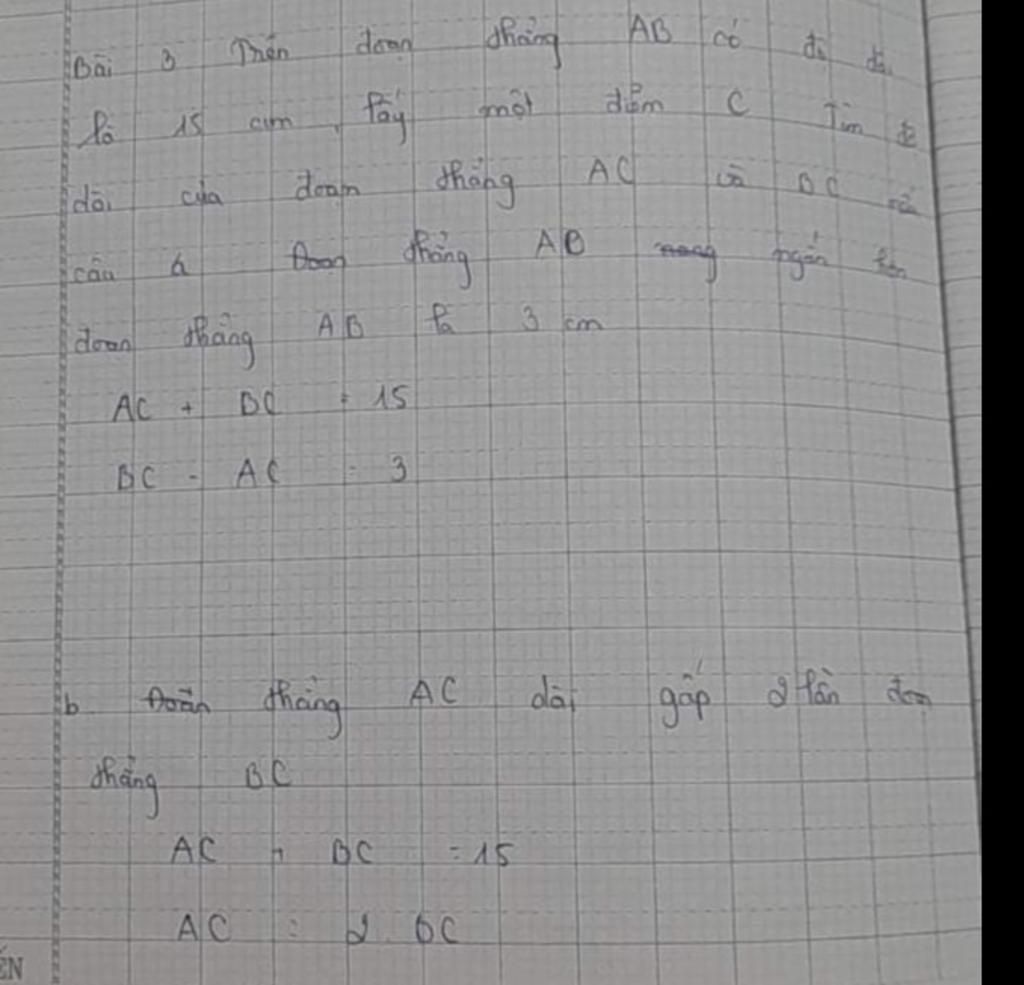 Bài 3 Trên đoạn thẳng AB có độ dài
là 15 cm, lấy một điểm C Tìm độ
dài của đoạn thẳng AC và BC
câu a Đoạn thẳng AB ngắn hơn
đoạn thẳng AB là 3 cm
AC + BC = 15
BC - AC = 3
b Đoạn thẳng AC dài gấp 2 lần đoạn
thẳng BC
AC + BC = 15
AC = 2 BC
ẾN